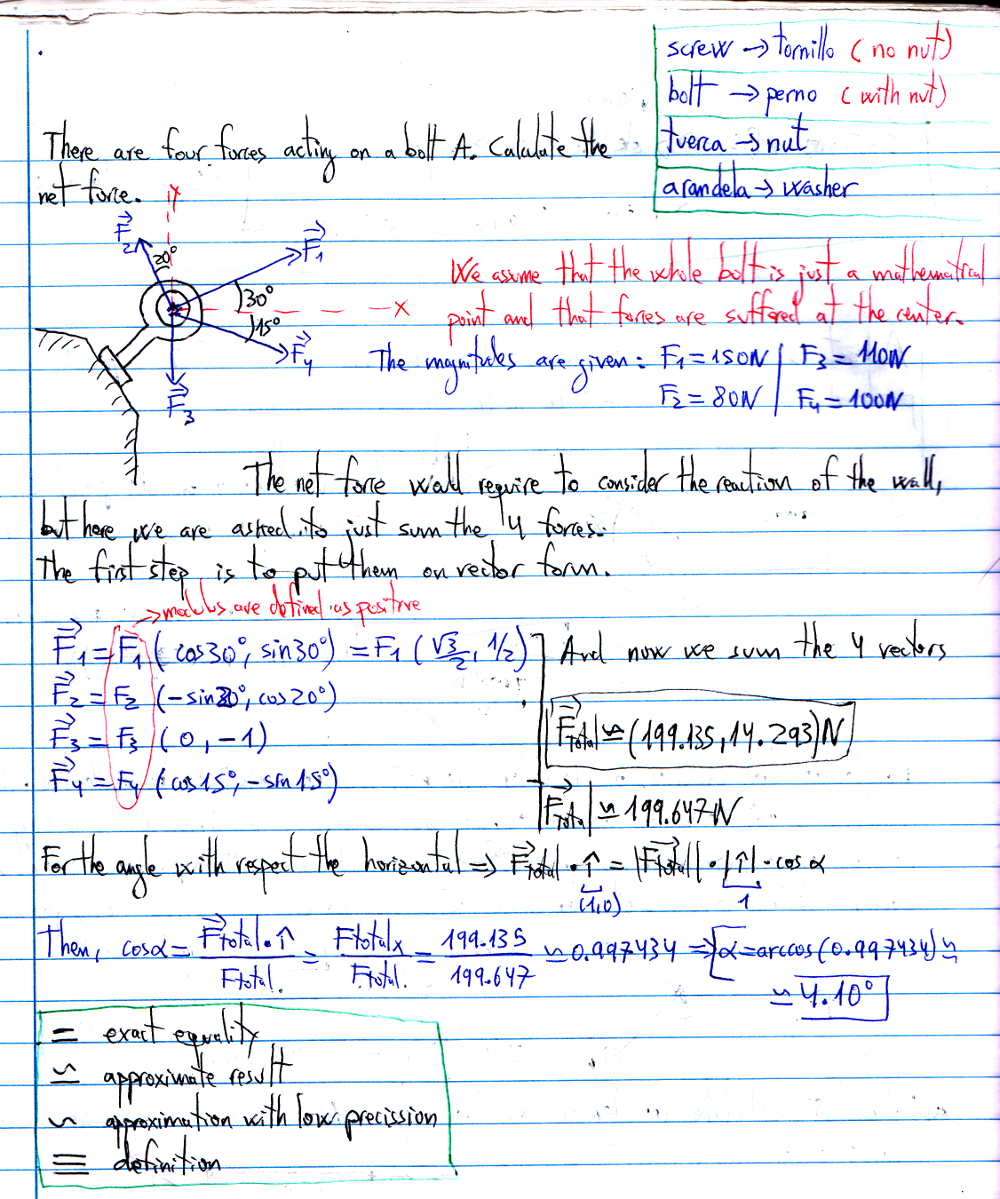 screw → tornillo (no nut)
bolt → perno (with nut)
tuerca → nut
arandela → washer
There are four forces acting on a bolt A. Calculate the
net force.
Y
F₂
20°
F₁
30°
X
15°
F₄
F₃
We assume that the whole bolt is just a mathematical
point and that forces are suffered at the center.
The magnitudes are given: F₁ = 150N | F₃ = 110N
F₂ = 80N | F₄ = 100N
The net force would require to consider the reaction of the wall,
but here we are asked to just sum the 4 forces.
The first step is to put them on vector form.
→ modulus are defined as positive
F⃗₁ = F₁ (cos30°, sin30°) = F₁ (√3/2, 1/2)
And now we sum the 4 vectors
F⃗₂ = F₂ (-sin20°, cos20°)
F⃗total ≃ (199.135, 14.293)N
F⃗₃ = F₃ (0, -1)
F⃗₄ = F₄ (cos15°, -sin15°)
|F⃗total| ≃ 199.647N
For the angle with respect the horizontal ⇒ F⃗total · î = |F⃗total| · |î| · cos α
(1,0) 1
Then, cosα = F⃗total · î / Ftotal. = Ftotalx / Ftotal. = 199.135 / 199.647 ≃ 0.997434 ⇒ α = arccos(0.997434) ≃
≃ 4.10°
= exact equality
≃ approximate result
∽ approximation with low precission
≡ definition